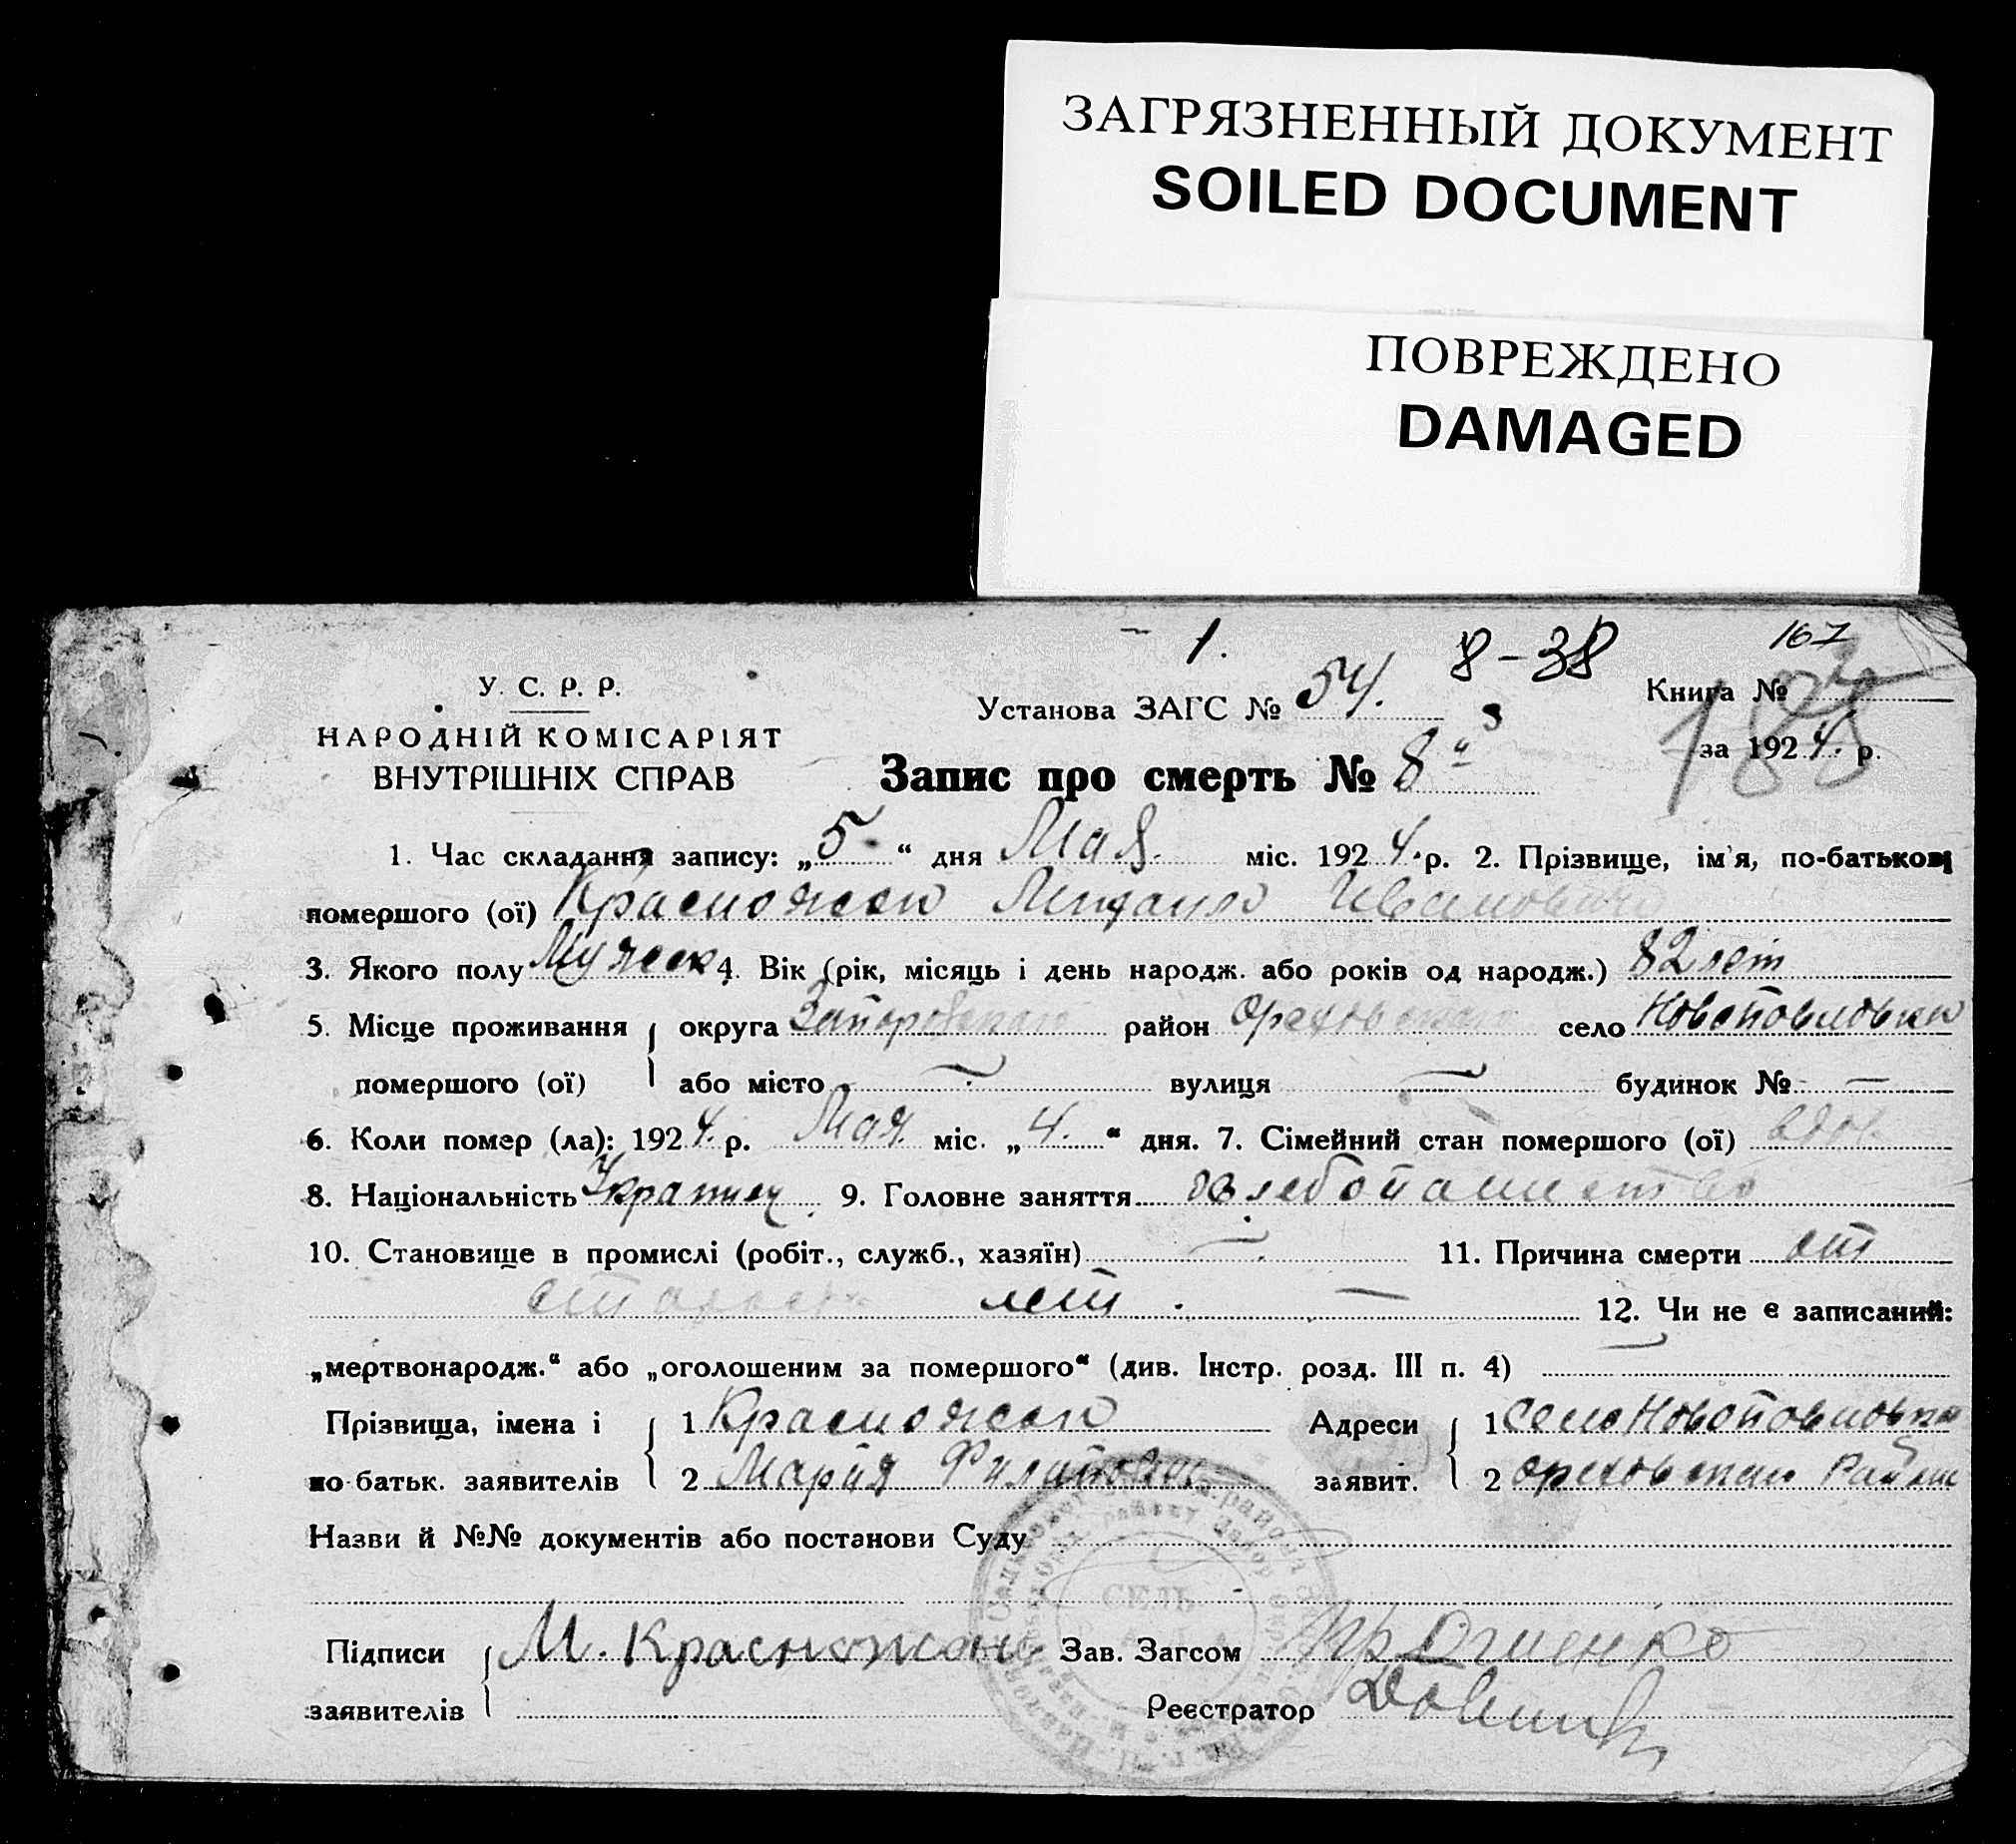 ЗАГРЯЗНЕННЫЙ ДОКУМЕНТ
SOILED DOCUMENT
ПОВРЕЖДЕНО
DAMAGED
1. 8-38 167
У. С. Р. Р.
Установа ЗАГС № 54. Книга №
НАРОДНІЙ КОМІСАРІЯТ
ВНУТРІШНІХ СПРАВ
за 1924. р.
Запис про смерть № 8
1. Час складання запису: „5“ дня Мая. міс. 1924. р. 2. Прізвище, ім'я, по-батькові
помершого (ої) Красножон Иванович
3. Якого полу Мужеск 4. Вік (рік, місяць і день народж. або років од народж.) 82 лет
5. Місце проживання округа Запорожского район Ореховского село Новопавловка
помершого (ої) або місто — вулиця — будинок № —
6. Коли помер (ла): 1924. р. Мая. міс. „4.“ дня. 7. Сімейний стан помершого (ої) вдов.
8. Національність 9. Головне заняття хлебопашество
10. Становище в промислі (робіт., служб., хазяїн) — 11. Причина смерти от
лет. — 12. Чи не є записаний:
„мертвонародж.“ або „оголошеним за помершого“ (див. Інстр. розд. III п. 4) —
Прізвища, імена і 1 Красножон Адреси 1 Село Новопавловка
по батьк. заявителів 2 Мария заявит. 2 Ореховскаи Район
Назви й №№ документів або постанови Суду
СЕЛЬ
Підписи М. Красножон Зав. Загсом
заявителів Реєстратор